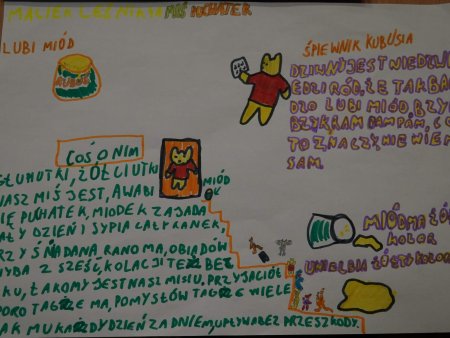 MACIEK LEŹNIKYN
MIŚ PUCHATEK
LUBI MIÓD
KUBUŚ
ŚPIEWNIK KUBUSIA
DZIWNY JEST NIEDŹWI
EDZI RÓD, ŻE TAK BAR
DZO LUBI MIÓD, BZY
BZYK RAM DAM PAM, CO
TO ZNACZY, NIE WIEM
SAM.
COŚ O NIM
GŁUPIUTKI, ŻÓŁCIUTKI
NASZ MIŚ JEST, A WABI
SIĘ PUCHATEK, MIODEK ZAJADA
CAŁY DZIEŃ I SYPIA CAŁY RANEK,
TRZY ŚNADANA RANO MA, OBIADÓW
CHYBA Z SZEŚĆ, KOLACJI TEŻ BEZ
LIKU, ŁAKOMY JEST NASZ MISIU, PRZYJACIÓŁ
SPORO TAGŻE MA, POMYSŁÓW TAGŻE WIELE
TAK MU KAŻDY DZIEŃ ZA DNIEM, UPŁYWA BEZ PRZESZKODY.
MIÓD
MIÓD MA ŻÓŁ
KOLOR
UWIELBIA ŻÓŁTY KOLOR